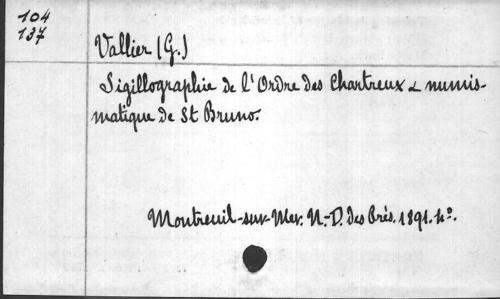 104
137
Vallier (G.)
Sigillographie de l'Ordre des Chartreux & numis-
matique de St Bruno.
Montreuil-sur-Mer. N.-D. des Prés. 1891. 4º.